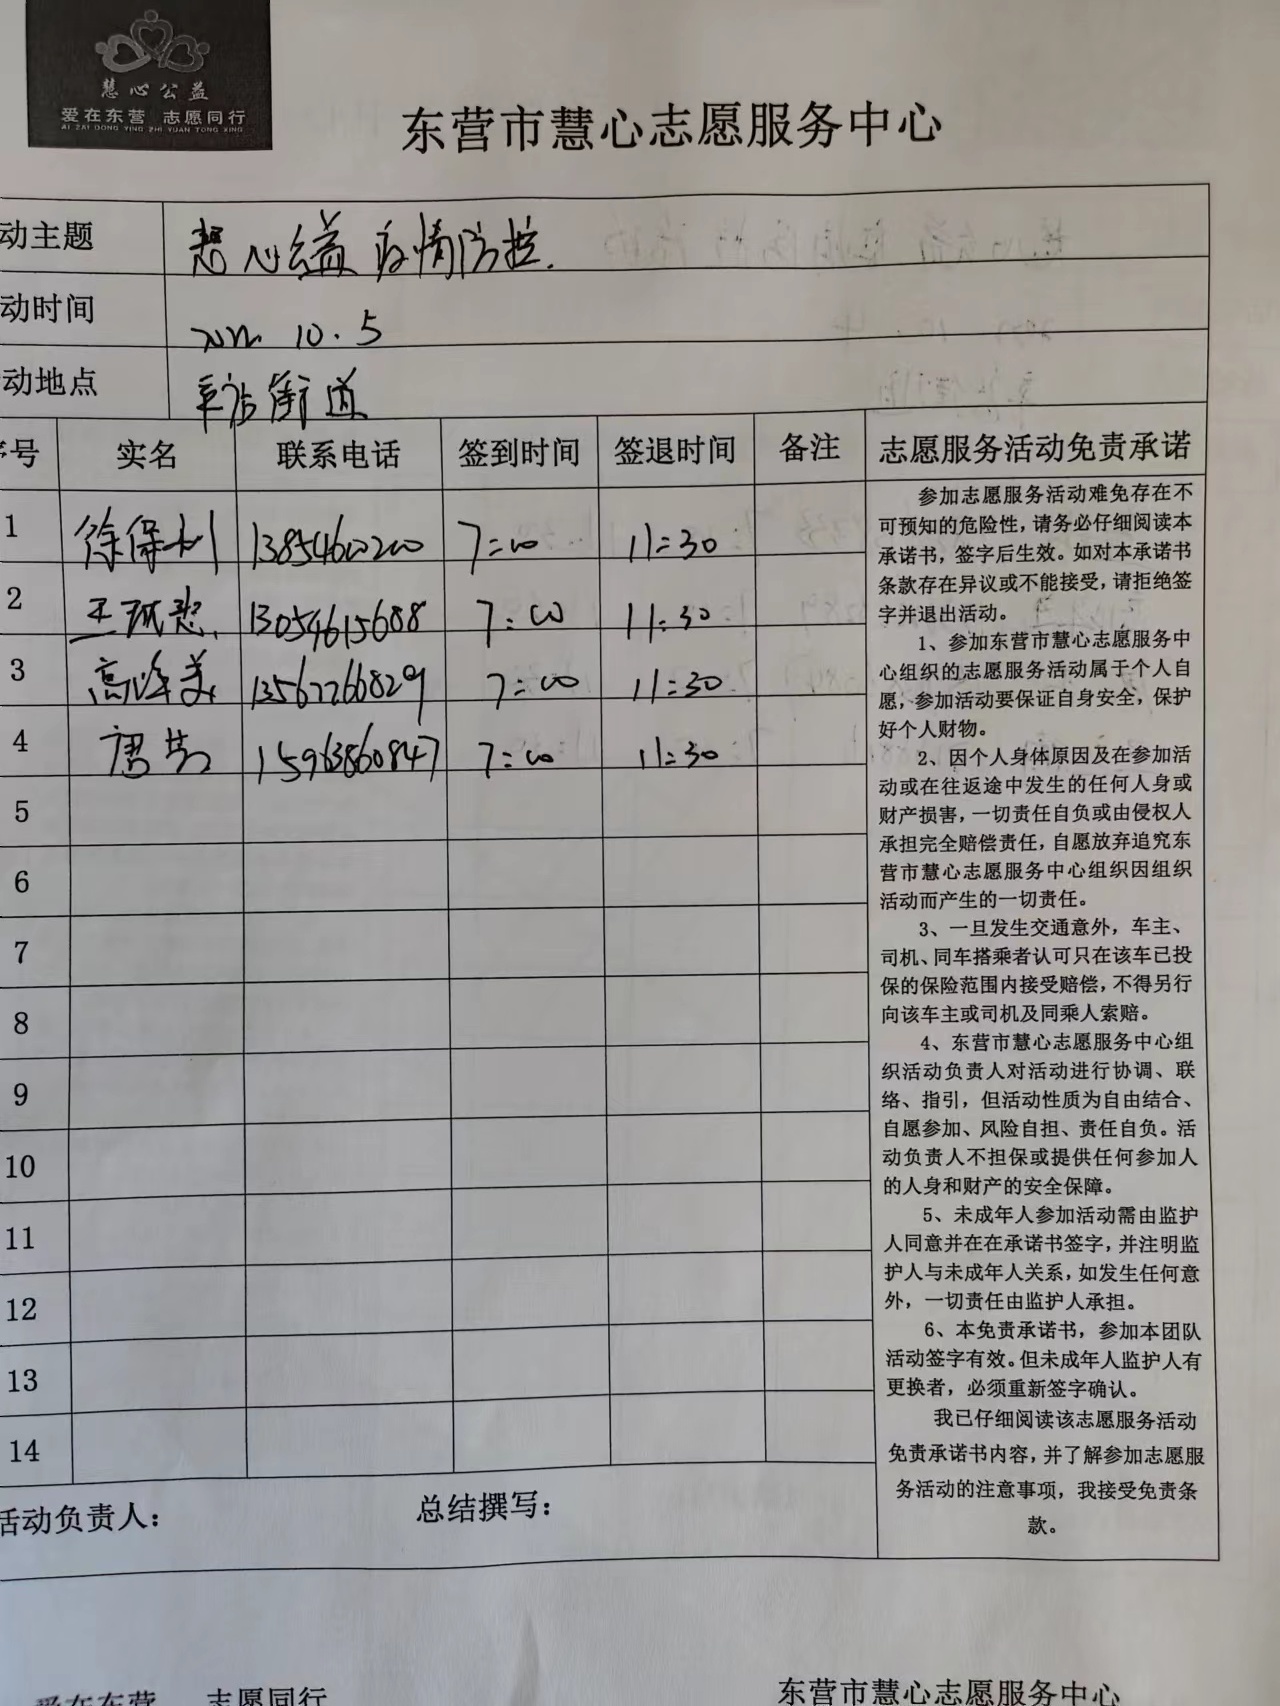 慧心公益
爱在东营 志愿同行
AI ZAI DONG YING ZHI YUAN TONG XING
东营市慧心志愿服务中心
动主题 慧心公益 疫情防控.
动时间 2022. 10. 5
动地点 辛店街道
序号 实名 联系电话 签到时间 签退时间 备注 志愿服务活动免责承诺
1 徐保利 13854600200 7:00 11:30
2 王 13054615688 7:00 11:30
3 高峰美 13562266829 7:00 11:30
4 唐 15963860847 7:00 11:30
5
6
7
8
9
10
11
12
13
14
参加志愿服务活动难免存在不
可预知的危险性，请务必仔细阅读本
承诺书，签字后生效。如对本承诺书
条款存在异议或不能接受，请拒绝签
字并退出活动。
1、参加东营市慧心志愿服务中
心组织的志愿服务活动属于个人自
愿，参加活动要保证自身安全，保护
好个人财物。
2、因个人身体原因及在参加活
动或在往返途中发生的任何人身或
财产损害，一切责任自负或由侵权人
承担完全赔偿责任，自愿放弃追究东
营市慧心志愿服务中心组织因组织
活动而产生的一切责任。
3、一旦发生交通意外，车主、
司机、同车搭乘者认可只在该车已投
保的保险范围内接受赔偿，不得另行
向该车主或司机及同乘人索赔。
4、东营市慧心志愿服务中心组
织活动负责人对活动进行协调、联
络、指引，但活动性质为自由结合、
自愿参加、风险自担、责任自负。活
动负责人不担保或提供任何参加人
的人身和财产的安全保障。
5、未成年人参加活动需由监护
人同意并在在承诺书签字，并注明监
护人与未成年人关系，如发生任何意
外，一切责任由监护人承担。
6、本免责承诺书，参加本团队
活动签字有效。但未成年人监护人有
更换者，必须重新签字确认。
我已仔细阅读该志愿服务活动
免责承诺书内容，并了解参加志愿服
务活动的注意事项，我接受免责条
款。
活动负责人： 总结撰写：
爱在东营 志愿同行 东营市慧心志愿服务中心